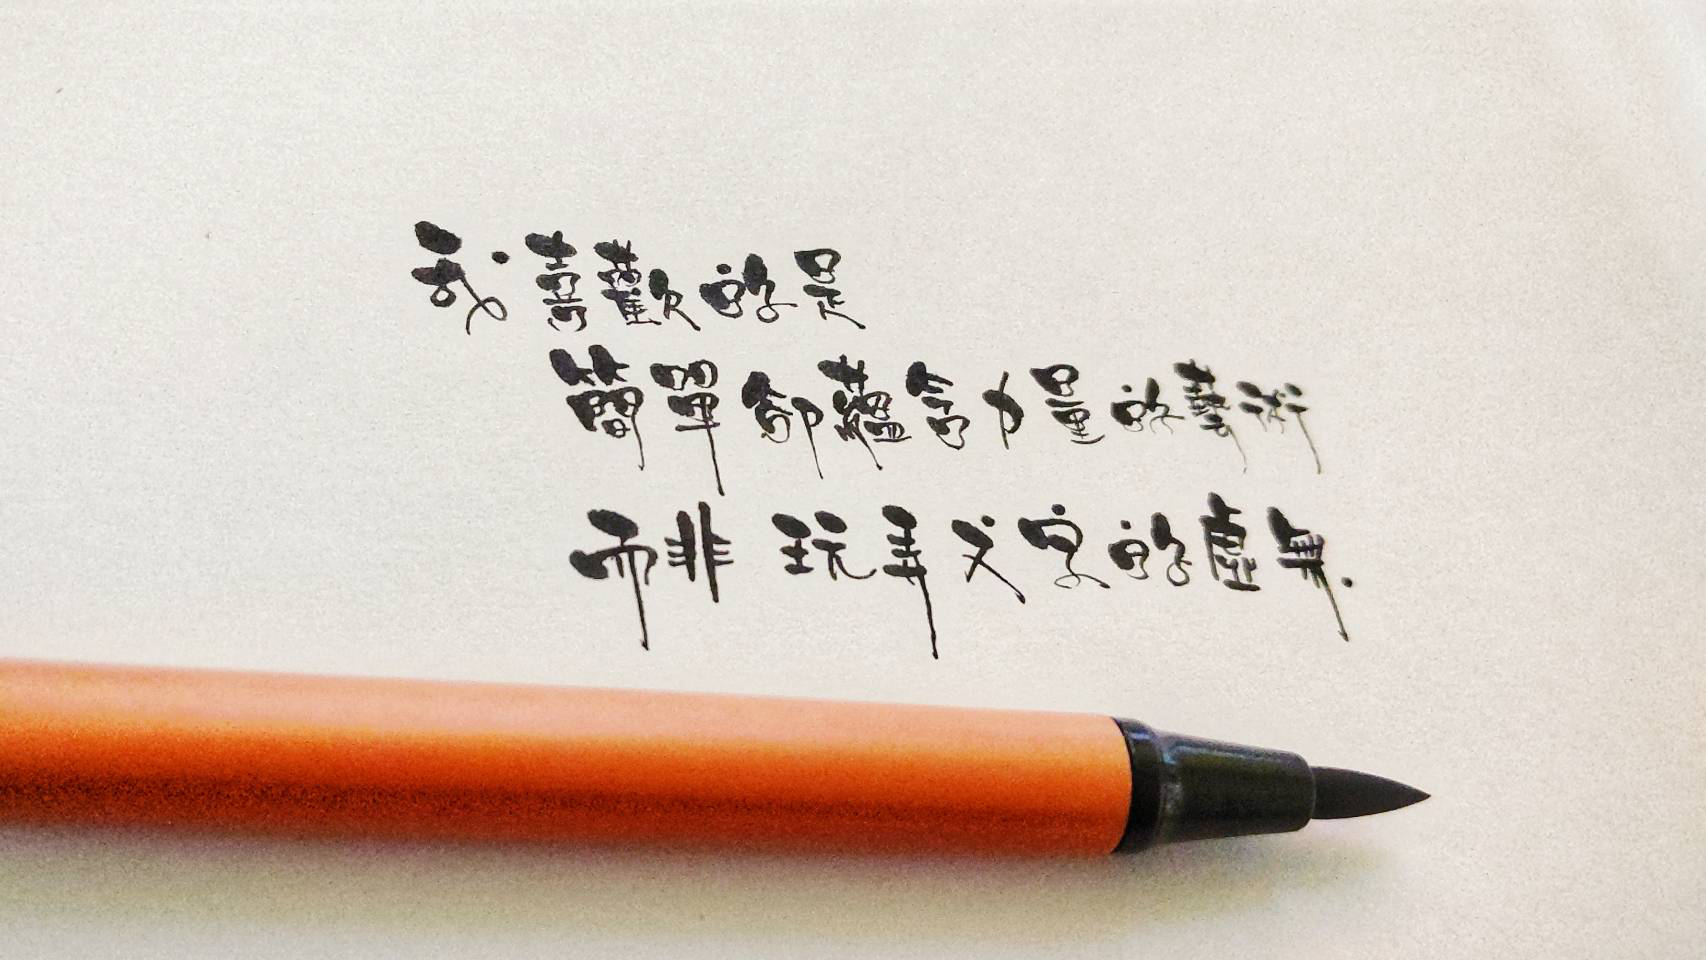 我喜歡的是
簡單卻蘊含力量的藝術
而非玩弄文字的虛無.